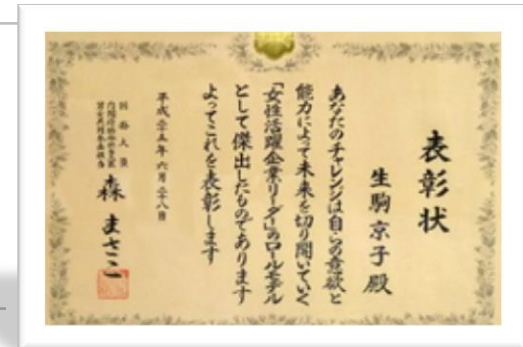 表彰状
生駒京子殿
あなたのチャレンジは自らの意欲と
能力によって未来を切り開いていく
「女性活躍企業リーダー」のロールモデル
として傑出したものであります
よってこれを表彰します
平成二十五年六月二十八日
国務大臣
森まさこ